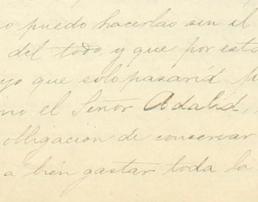 o puedo hacerlas sin el
del todo y que por esta
yo que solo pasaría
no el Señor Adalid,
obligacion de conservar
a bién gastar toda la